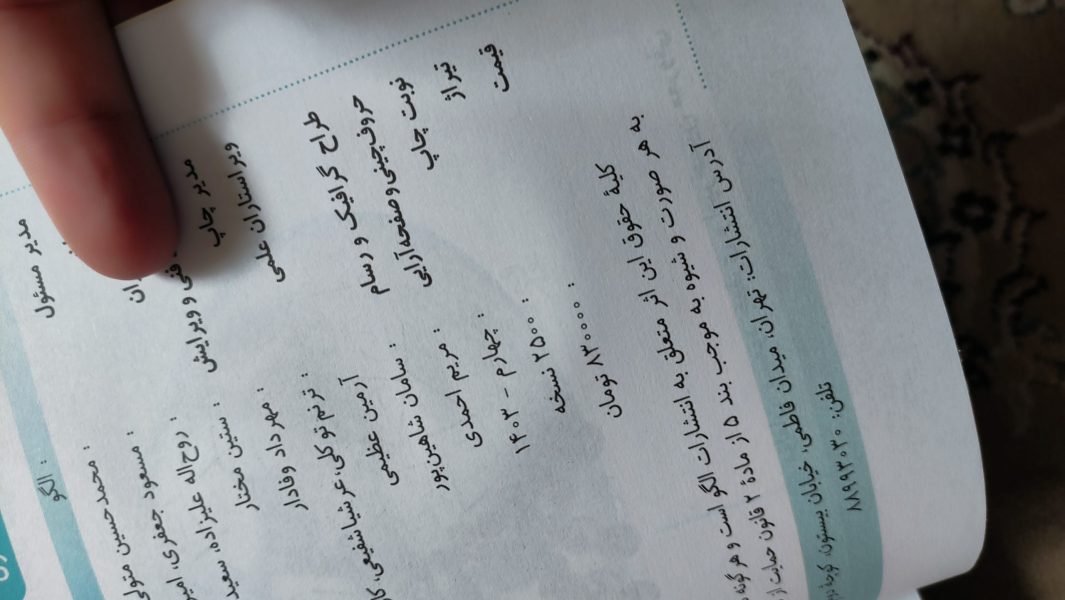 : الگو
مدیر مسئول : محمدحسین متولی
: مسعود جعفری،
فنی و ویرایش : روح‌اله علیزاده، سعید
مدیر چاپ : ستین مختار
ویراستاران علمی : مهرداد وفادار
: ترنم توکلی، عرشیا شفیعی،
آرمین عظیمی
طراح گرافیک و رسام : سامان شاهین‌پور
حروف‌چینی و صفحه‌آرایی : مریم احمدی
نوبت چاپ : چهارم - ۱۴۰۳
تیراژ : ۲۵۰۰ نسخه
قیمت : ۸۳۰۰۰۰ تومان
کلیهٔ حقوق این اثر متعلق به انتشارات الگو است و هر گونه
به هر صورت و شیوه به موجب بند ۵ از مادهٔ ۲ قانون حمایت از
آدرس انتشارات: تهران، میدان فاطمی، خیابان بیستون، کوچه
تلفن: ۸۸۹۹۳۰۳۰